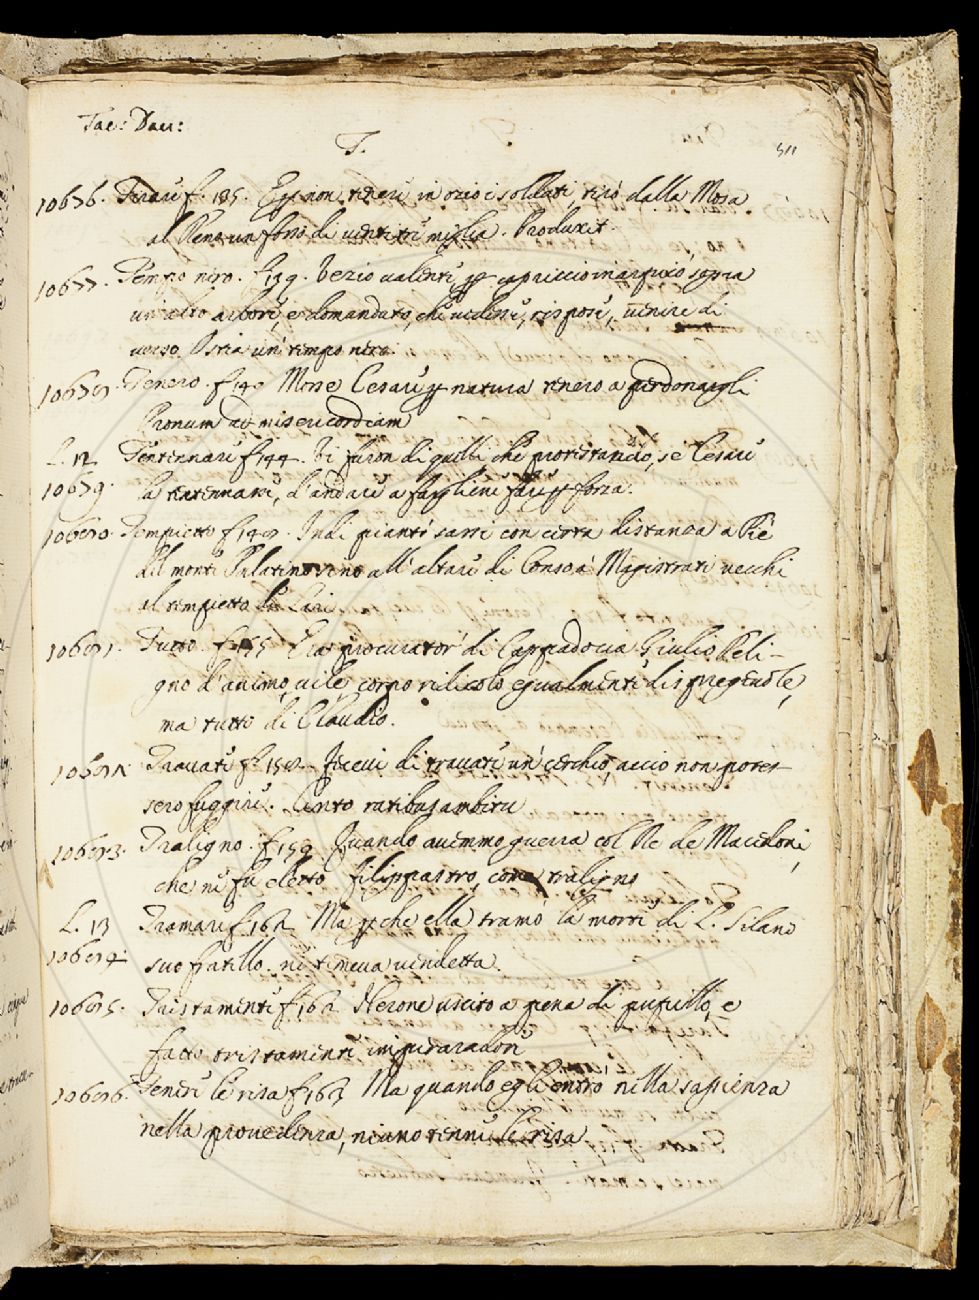 Tac: Dav:
T.
511
10676. Tirare f. 135. E per non tenere in ozio i soldati, tirò dalla Mosa
al Reno un fosso di ventitre miglia. Produxit
10677. Tempo nero. f. 139. Vezio valente per capriccio inarpicò sopra
un' alto arbore, e domandato, che vedesse, rispose, venire di
verso Ostia un tempo nero.
10678. Tenero. f. 140 Mosse Cesare per natura tenero a perdonargli
Pronum ad misericordiam
L. 12 Tentennare f. 144. Vi furon di quelli che protestando, se Cesare
10679. la tentennare, d'andare a fargliene fare per forza.
10680. Tempietto f. 149. Indi piantò sassi con certa distanza a piè
del monte Palatino vino all' altare di Conso à Magistrati vecchi
al tempietto de Lari
10681. Tutto f. 155 Era procurator di Cappadocia Giulio Peli-
gno d'animo vile, corpo ridicolo egualmente dispregevole,
ma tutto di Claudio.
Travate f. 158. Fecevi di travate un cerchio, accio non potes
sero fuggire. Cinto ratibus ambitu
10683. Traligno. f. 159 Quando avemmo guerra col Re de Macedoni,
che ne fu eletto Filippastro, come traligno
L. 13 Tramare f. 162 Ma perche ella tramò la morte di L. Silano
10684. suo fratello, ne temeva vendetta.
10685. Tristamente f. 162 Nerone uscito a pena di pupillo, e
fatto tristamente imperadore
10686. Tenere le risa f. 163 Ma quando egli entro nella sapienza
nella provedenza, niuno tenne le risa.